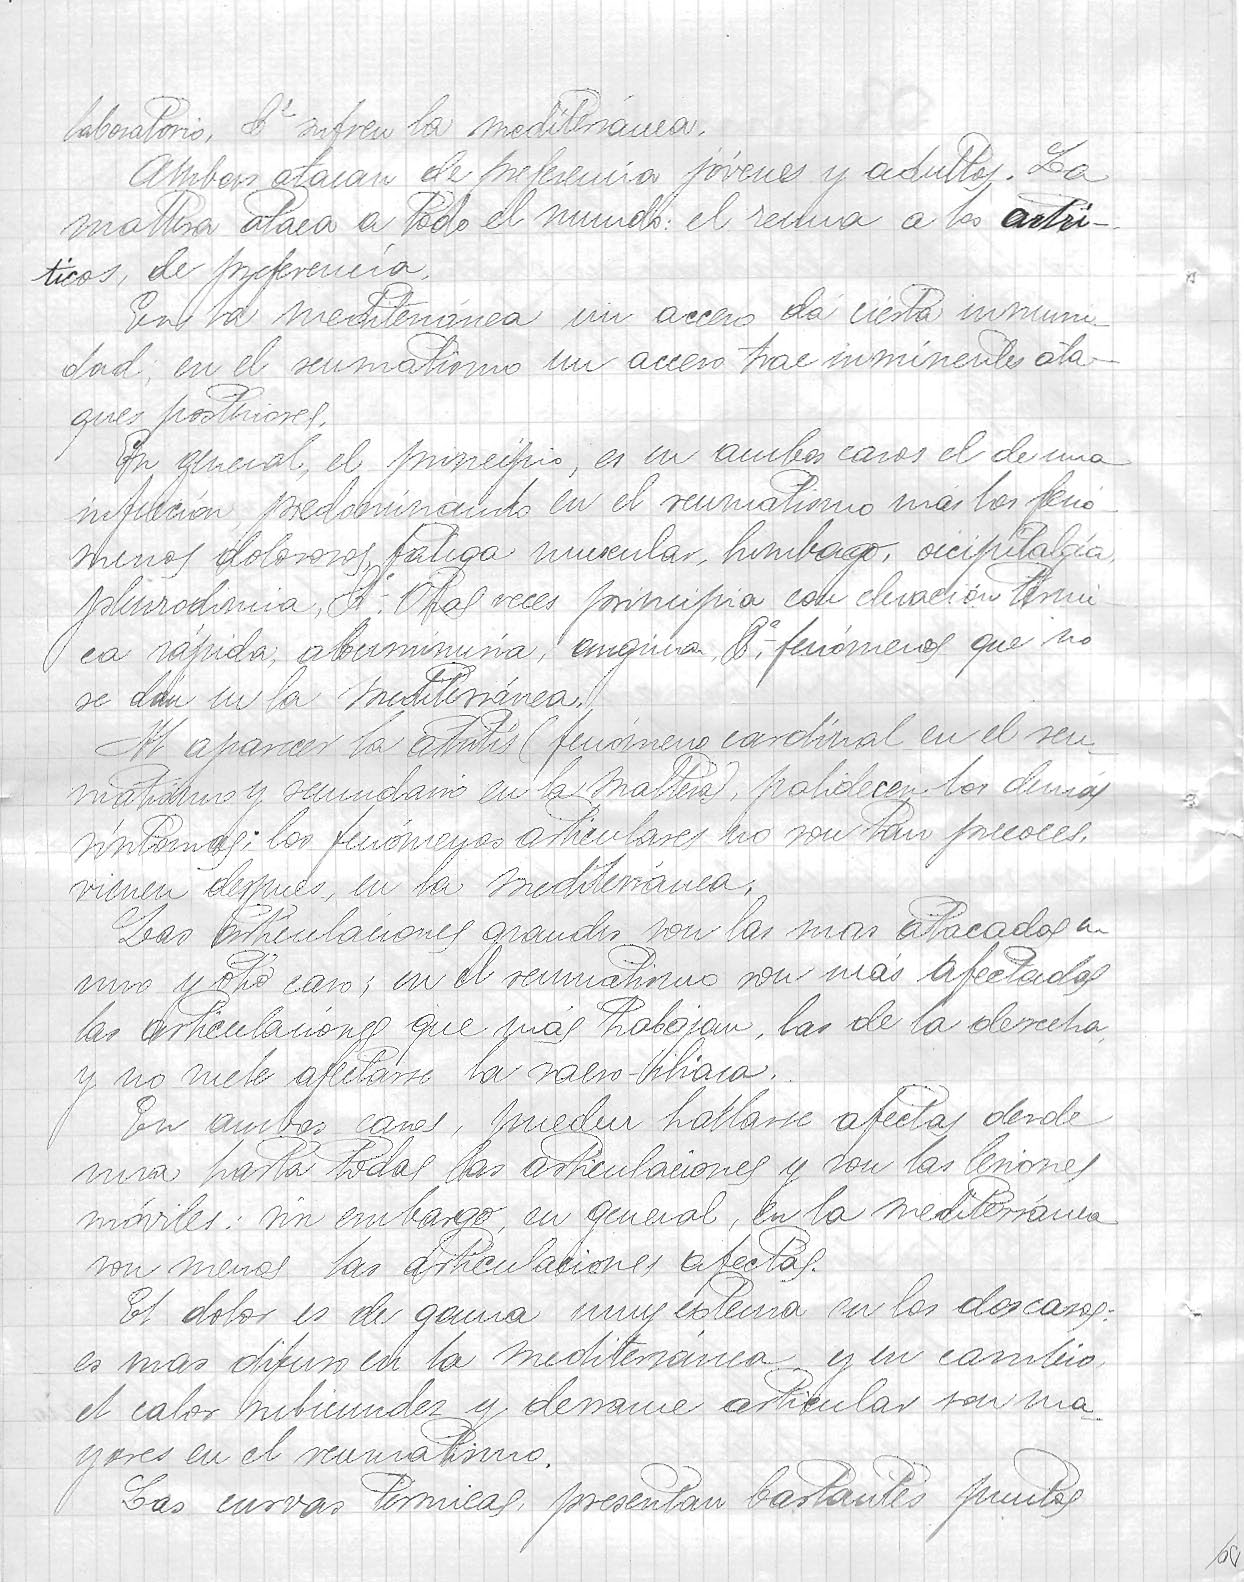 laboratorio, &ª sufren la mediterránea.
Ambas atacan de preferencia jóvenes y adultos. La
maltesa ataca a todo el mundo: el reuma a los artrí-
ticos, de preferencia.
En la mediterránea un acceso dá cierta inmuni-
dad; en el reumatismo un acceso trae inminentes ata-
ques posteriores.
En general, el principio, es en ambos casos el de una
infección, predominando en el reumatismo más los fenó-
menos dolorosos, fatiga muscular, lumbago, occipitalgia,
pleurodinia, &ª. Otras veces principia con elevación térmi-
ca rápida, albuminuria, angina, &ª, fenómenos que no
se dán en la mediterránea.
Al aparecer la artritis (fenómeno cardinal en el reu-
matismo y secundario en la maltesa), palidecen los demás
síntomas; los fenómenos articulares no son tan precoces,
vienen despues, en la mediterránea.
Las articulaciones grandes son las mas atacadas en
uno y otro caso; en el reumatismo son más afectadas
las articulaciones que más trabajan, las de la derecha,
y no suele afectarse la sacro-iliaca.
En ambos casos, pueden hallarse afectas desde
una hasta todas las articulaciones y son las lesiones
móviles: sin embargo, en general, en la mediterránea
son menos las articulaciones afectas.
El dolor es de gama muy extensa en los dos casos:
es mas difuso en la mediterránea y en cambio,
el calor rubicundez y derrame articular son ma-
yores en el reumatismo.
Las curvas térmicas, presentan bastantes puntos